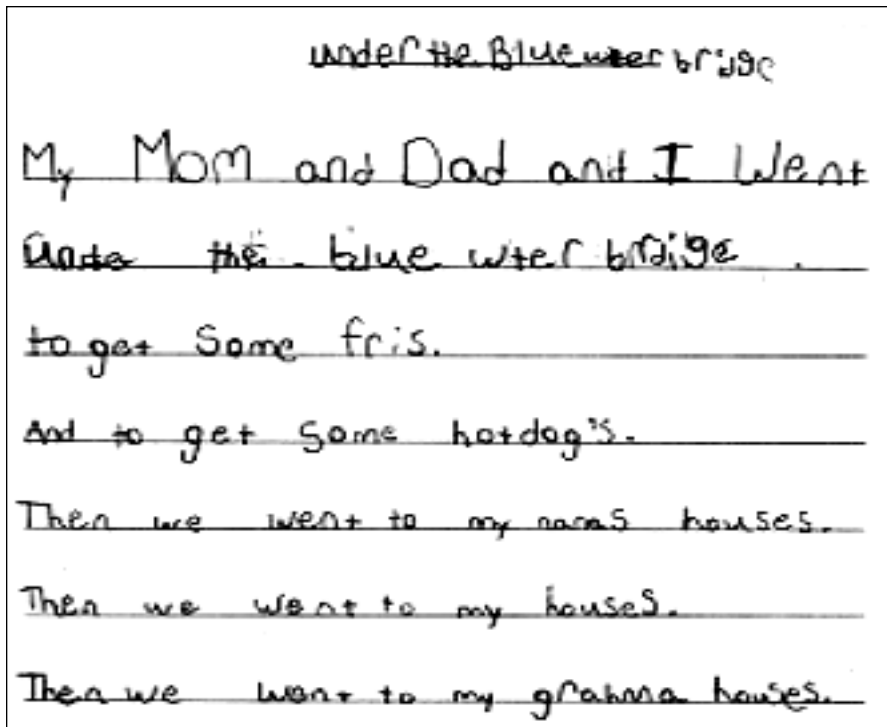 under the Blue wter bridge
My Mom and Dad and I Went
unde the blue wter braige.
to get Some fris.
And to get Some hotdog's.
Then we went to my nanas houses.
Then we went to my houses.
Then we went to my grahma houses.